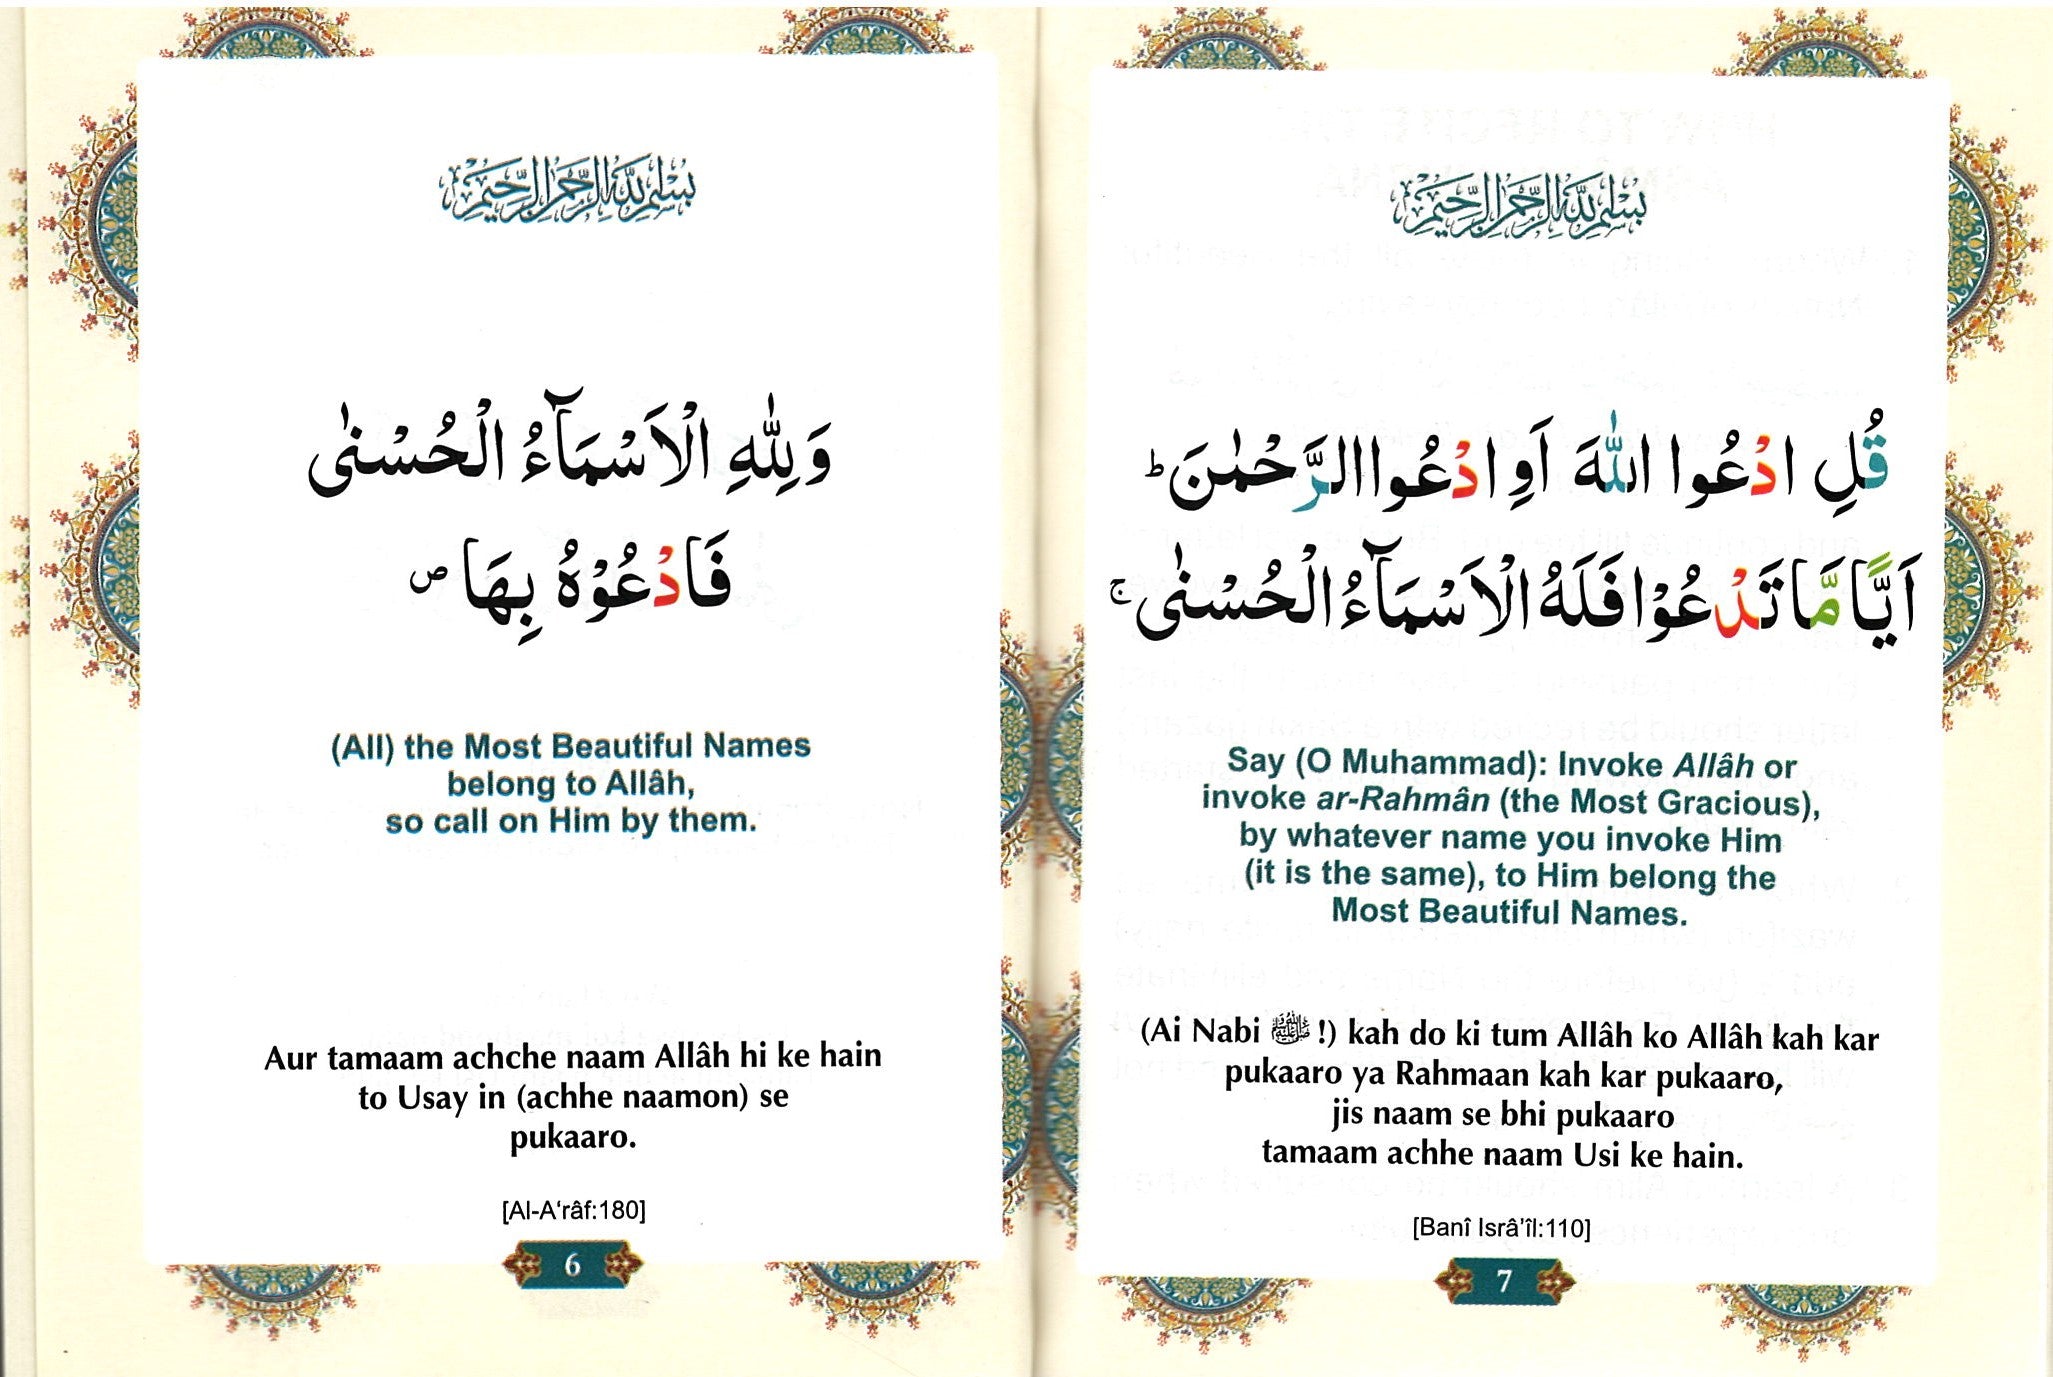 بسم الله الرحمن الرحيم
وَلِلّٰهِ الْاَسْمَآءُ الْحُسْنٰى
فَادْعُوْهُ بِهَا ص
(All) the Most Beautiful Names
belong to Allâh,
so call on Him by them.
Aur tamaam achche naam Allâh hi ke hain
to Usay in (achhe naamon) se
pukaaro.
[Al-A‘râf:180]
6
بسم الله الرحمن الرحيم
قُلِ ادْعُوا اللّٰهَ اَوِ ادْعُوا الرَّحْمٰنَ ط
اَيًّا مَّا تَدْعُوْا فَلَهُ الْاَسْمَآءُ الْحُسْنٰى ج
Say (O Muhammad): Invoke Allâh or
invoke ar-Rahmân (the Most Gracious),
by whatever name you invoke Him
(it is the same), to Him belong the
Most Beautiful Names.
(Ai Nabi ﷺ !) kah do ki tum Allâh ko Allâh kah kar
pukaaro ya Rahmaan kah kar pukaaro,
jis naam se bhi pukaaro
tamaam achhe naam Usi ke hain.
[Banî Isrâ’îl:110]
7